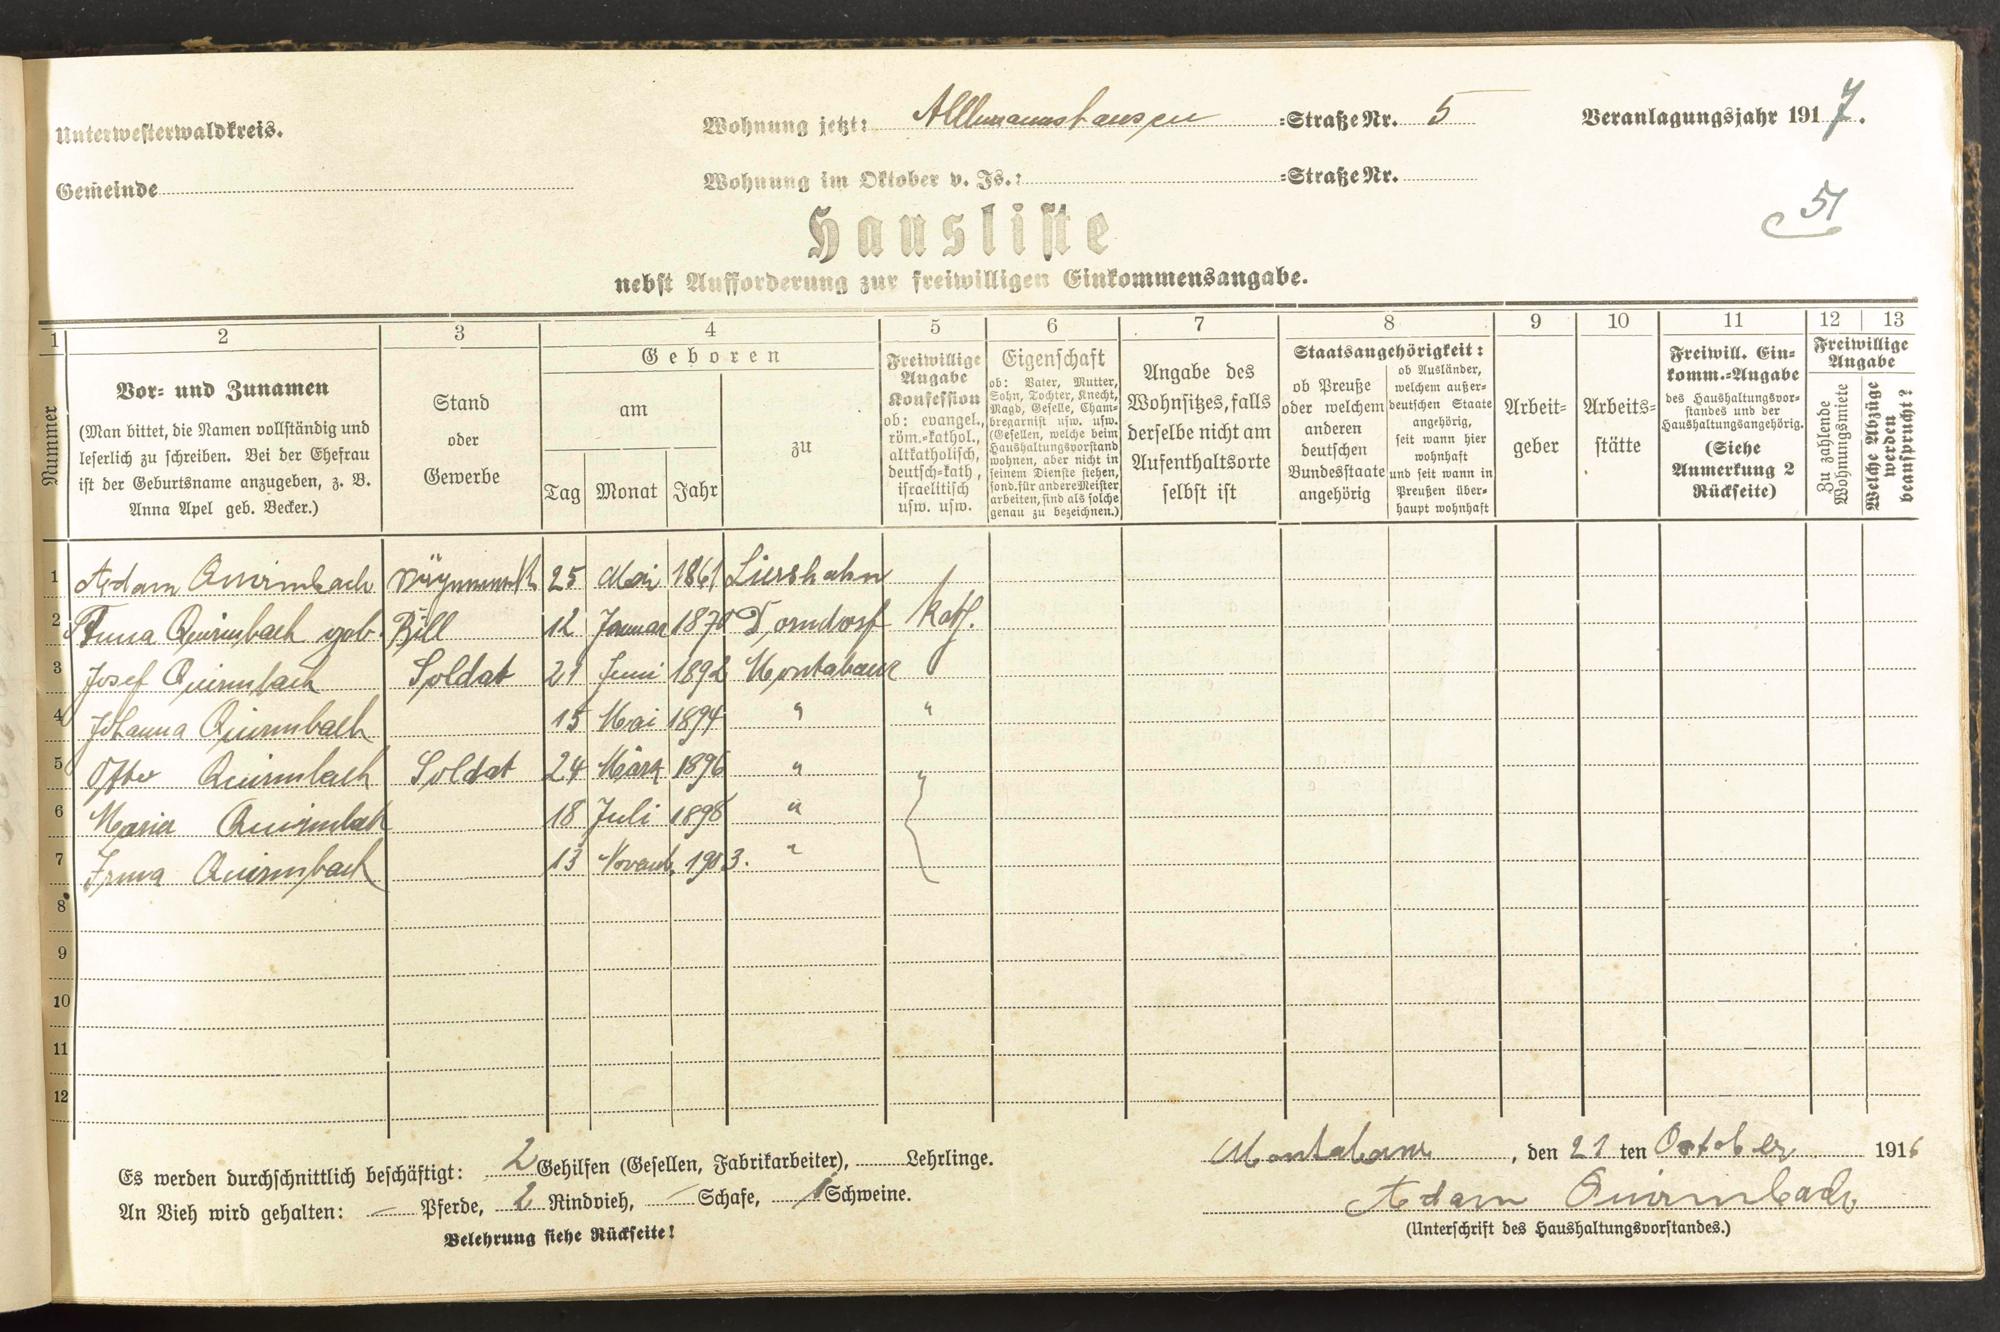 Unterwesterwaldkreis.
Wohnung jetzt: Allmannshausen =Straße Nr. 5
Veranlagungsjahr 1917.
Gemeinde
Wohnung im Oktober v. Js.: =Straße Nr.
51
Hausliste
nebst Aufforderung zur freiwilligen Einkommensangabe.
1 2 3 4 5 6 7 8 9 10 11 12 13
Nummer
Vor- und Zunamen
(Man bittet, die Namen vollständig und
leserlich zu schreiben. Bei der Ehefrau
ist der Geburtsname anzugeben, z. B.
Anna Apel geb. Becker.)
Stand
oder
Gewerbe
Geboren
am
Tag Monat Jahr
zu
Freiwillige
Angabe
Konfession
ob: evangel.,
röm.-kathol.,
altkatholisch,
deutsch-kath.,
israelitisch
usw. usw.
Eigenschaft
ob: Vater, Mutter,
Sohn, Tochter, Knecht,
Magd, Geselle, Cham-
bregarnist usw. usw.
(Gesellen, welche beim
Haushaltungsvorstand
wohnen, aber nicht in
seinem Dienste stehen,
sond. für andere Meister
arbeiten, sind als solche
genau zu bezeichnen.)
Angabe des
Wohnsitzes, falls
derselbe nicht am
Aufenthaltsorte
selbst ist
Staatsangehörigkeit:
ob Preuße
oder welchem
anderen
deutschen
Bundesstaate
angehörig
ob Ausländer,
welchem außer-
deutschen Staate
angehörig,
seit wann hier
wohnhaft
und seit wann in
Preußen über-
haupt wohnhaft
Arbeit-
geber
Arbeits-
stätte
Freiwill. Ein-
komm.-Angabe
des Haushaltungsvor-
standes und der
Haushaltungsangehörig.
(Siehe
Anmerkung 2
Rückseite)
Freiwillige
Angabe
Zu zahlende
Wohnungsmiete
Welche Abzüge
werden
beansprucht?
1 Adam Quirmbach 25 Mai 1861 Liershahn
2 Anna Quirmbach geb. Bill 12 Januar 1870 Dorndorf kath.
3 Josef Quirmbach Soldat 21 Juni 1892 Montabaur
4 Johanna Quirmbach 15 Mai 1894 " "
5 Otto Quirmbach Soldat 24 März 1896 " "
6 Maria Quirmbach 18 Juli 1898 "
7 Irma Quirmbach 13 Novemb. 1903. "
8
9
10
11
12
Es werden durchschnittlich beschäftigt: 2 Gehilfen (Gesellen, Fabrikarbeiter), Lehrlinge.
An Vieh wird gehalten: – Pferde, 2 Rindvieh, – Schafe, 1 Schweine.
Belehrung siehe Rückseite!
Montabaur, den 21 ten October 1916
Adam Quirmbach
(Unterschrift des Haushaltungsvorstandes.)